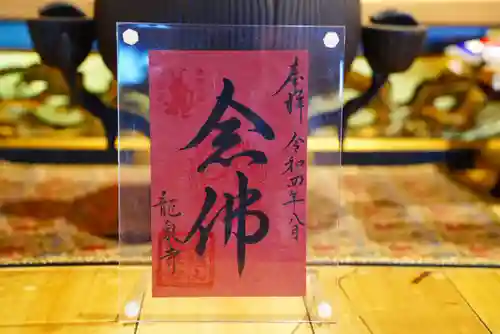 奉拝
令和四年八月
念佛
龍泉寺